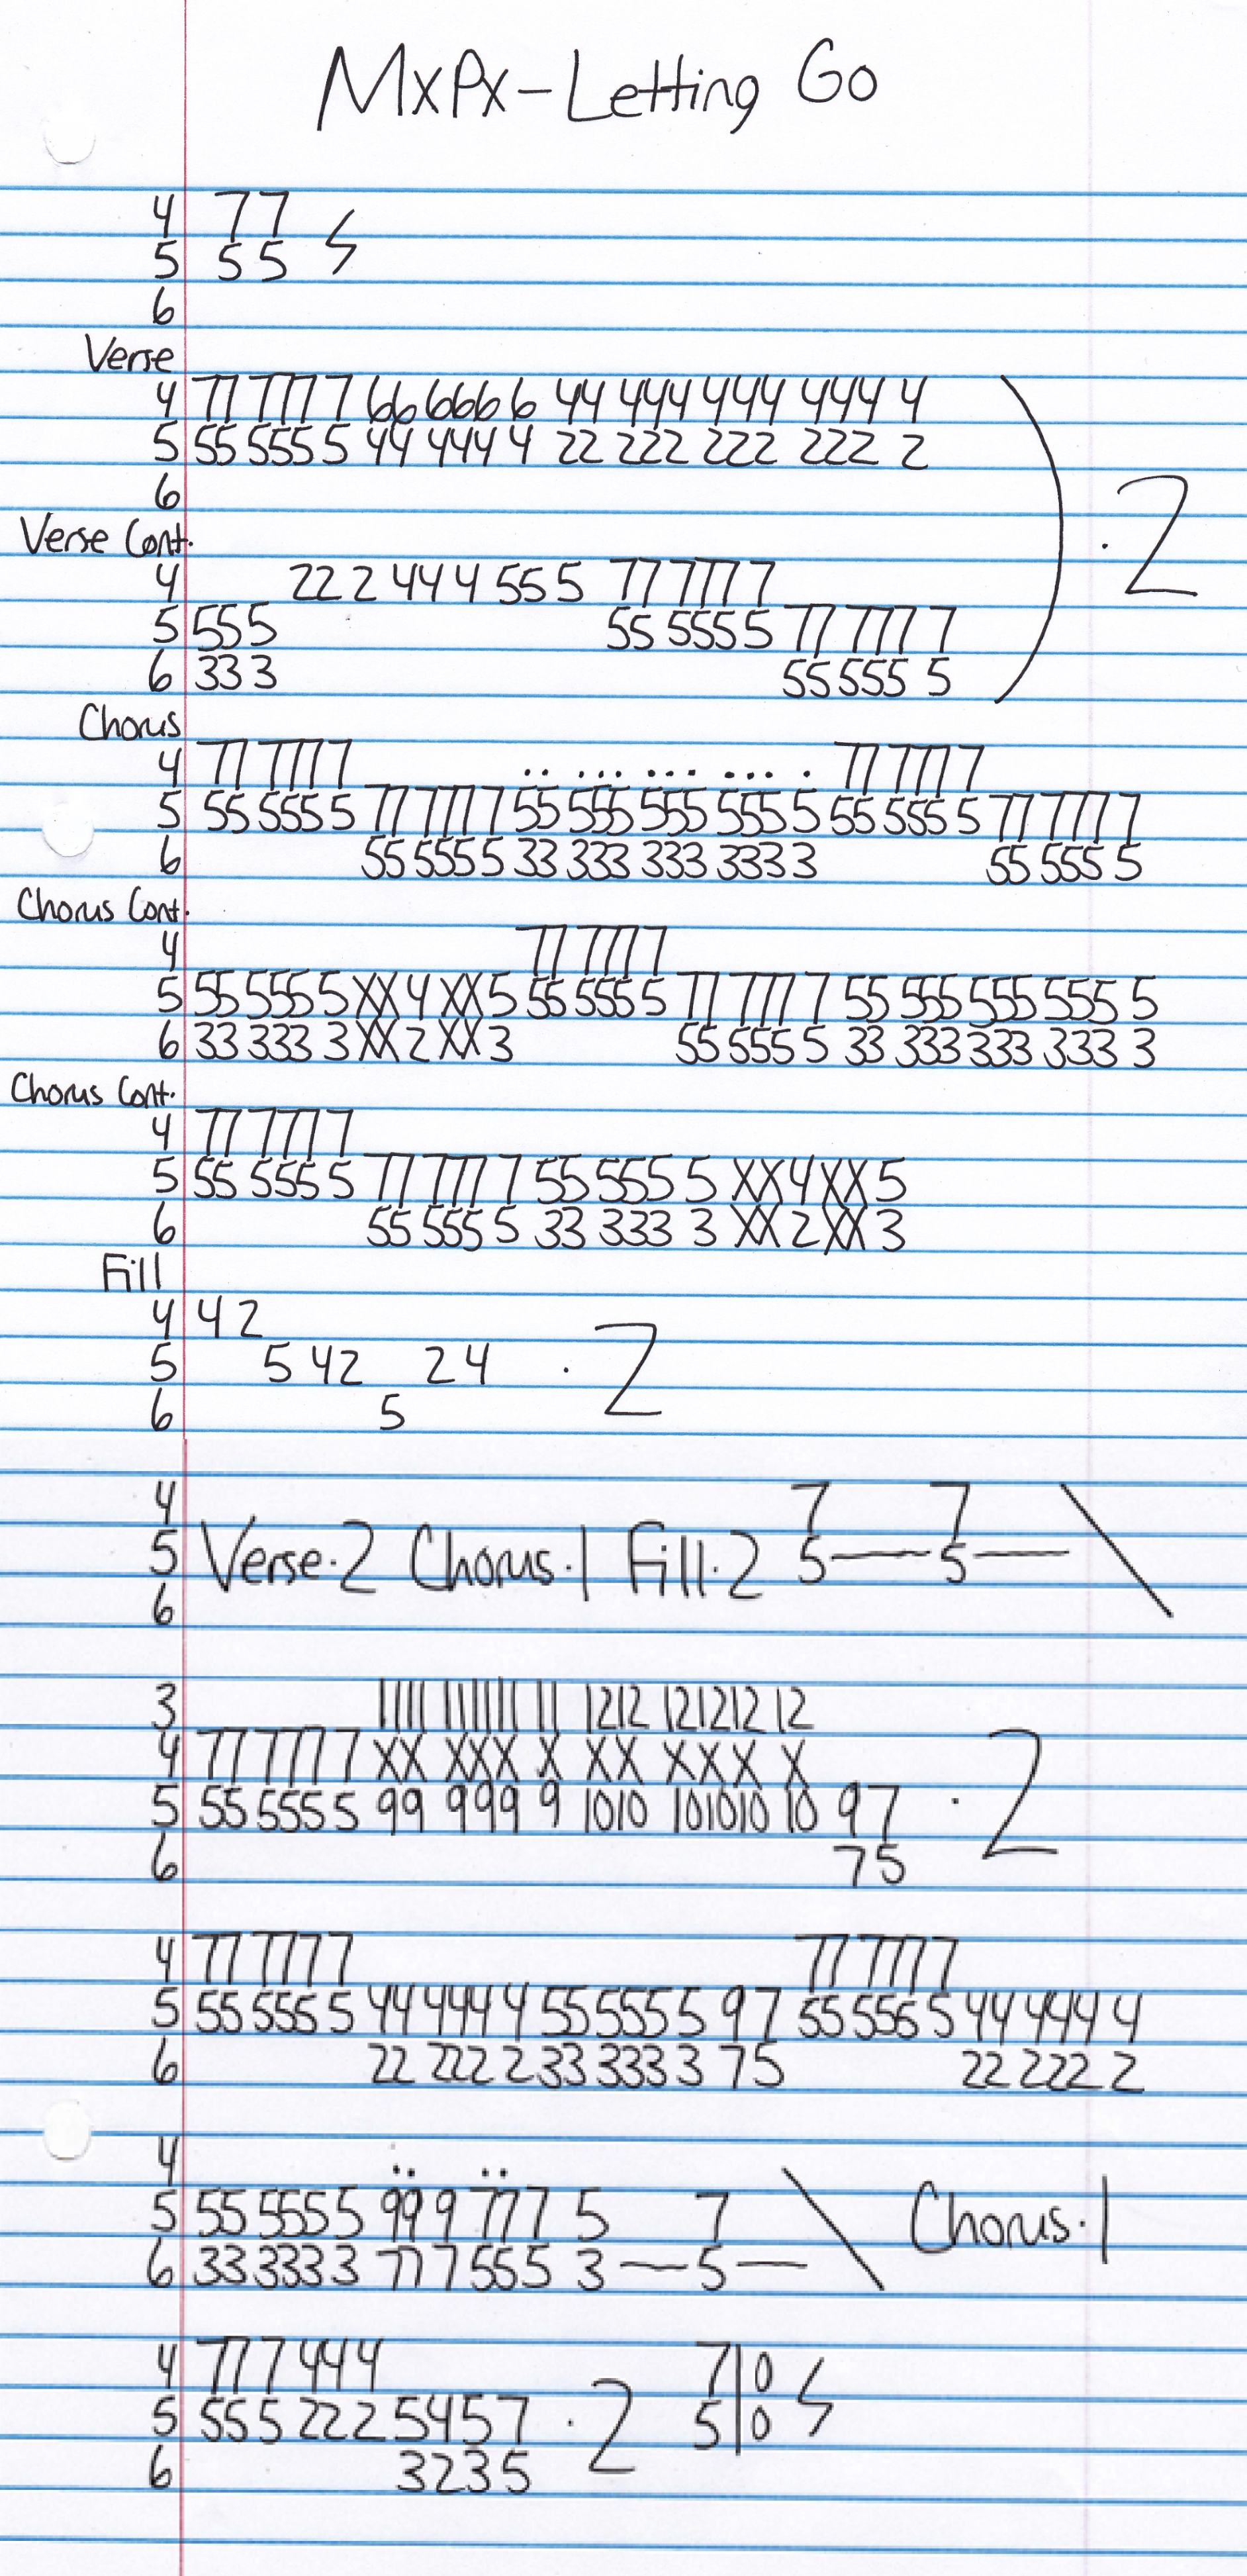 MxPx-Letting Go
4 77
5 55
6
Verse
4 77 777 7 66 666 6 44 444 444 444 4
5 55 555 5 44 444 4 22 222 222 222 2
6
Verse Cont.
4 22 2 44 4 55 5 77 777 7
5 55 5 55 555 5 77 777 7
6 33 3 55 555 5
.2
Chorus
4 77 777 7 .. ... ... ... . 77 777 7
5 55 555 5 77 777 7 55 555 555 555 5 55 555 5 77 777 7
6 55 555 5 33 333 333 333 3 55 555 5
Chorus Cont.
4 77 777 7
5 55 555 5 XX 4 XX 5 55 555 5 77 777 7 55 555 555 555 5
6 33 333 3 XX 2 XX 3 55 555 5 33 333 333 333 3
Chorus Cont.
4 77 777 7
5 55 555 5 77 777 7 55 555 5 XX 4 XX 5
6 55 555 5 33 333 3 XX 2 XX 3
Fill
4 4 2
5 5 42 24 .2
6 5
4 7 7
5 Verse.2 Chorus.1 Fill.2 5—5—\
6
3 1111 111111 11 1212 121212 12
4 77 777 7 XX XXX X XX XXX X
5 55 555 5 99 999 9 1010 101010 10 97 .2
6 75
4 77 777 7 77 777 7
5 55 555 5 44 444 4 55 555 5 97 55 555 5 44 444 4
6 22 222 2 33 333 3 75 22 222 2
4 .. ..
5 55 555 5 99 9 77 7 5 7 \ Chorus.1
6 33 333 3 77 7 55 5 3—5—
4 77 7 44 4 7|0
5 55 5 22 2 5457 .2 5|0
6 3235